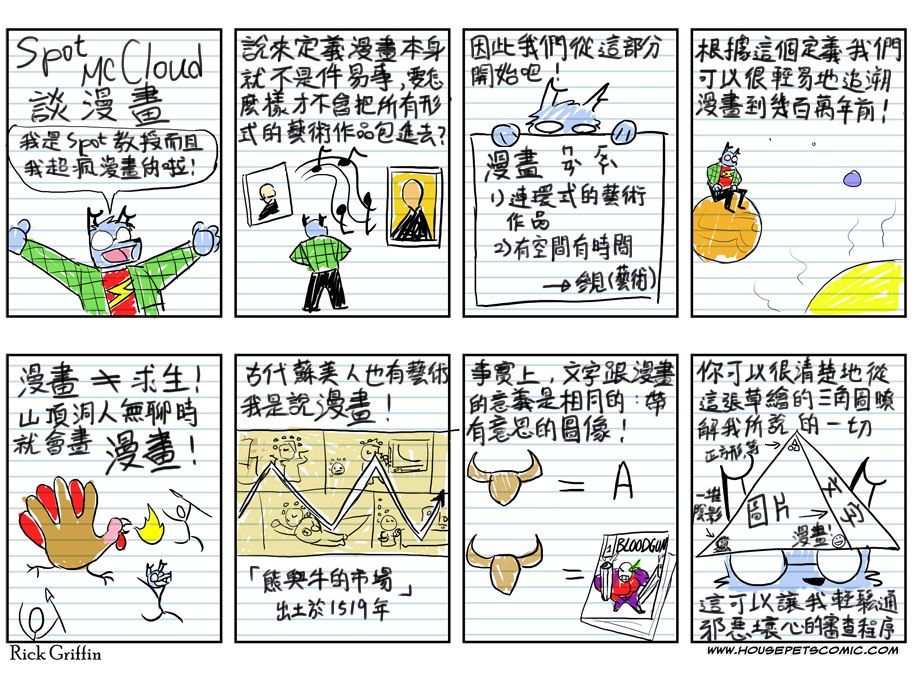 Spot
McCloud
談漫畫
我是Spot教授而且
我超瘋漫畫的啦!
說來定義漫畫本身
就不是件易事,要怎
麼樣才不會把所有形
式的藝術作品包進去?
因此我們從這部分
開始吧!
漫畫 ㄅㄞ
1)連環式的藝術
作品
2)有空間有時間
→參見(藝術)
根據這個定義我們
可以很輕易地追溯
漫畫到幾百萬年前!
漫畫≠求生!
山頂洞人無聊時
就會畫 漫畫!
古代蘇美人也有藝術
我是說漫畫!
「熊與牛的市場」
出土於1519年
事實上,文字跟漫畫
的意義是相同的:帶
有意思的圖像!
= A
=
1 BLOODGUM
你可以很清楚地從
這張草繪的三角圖瞭
解我所說的一切
正方形,等
一堆
陰影
圖片
文字
漫畫!
這可以讓我輕鬆通
邪惡壞心的審查程序
Rick Griffin
WWW.HOUSEPETSCOMIC.COM